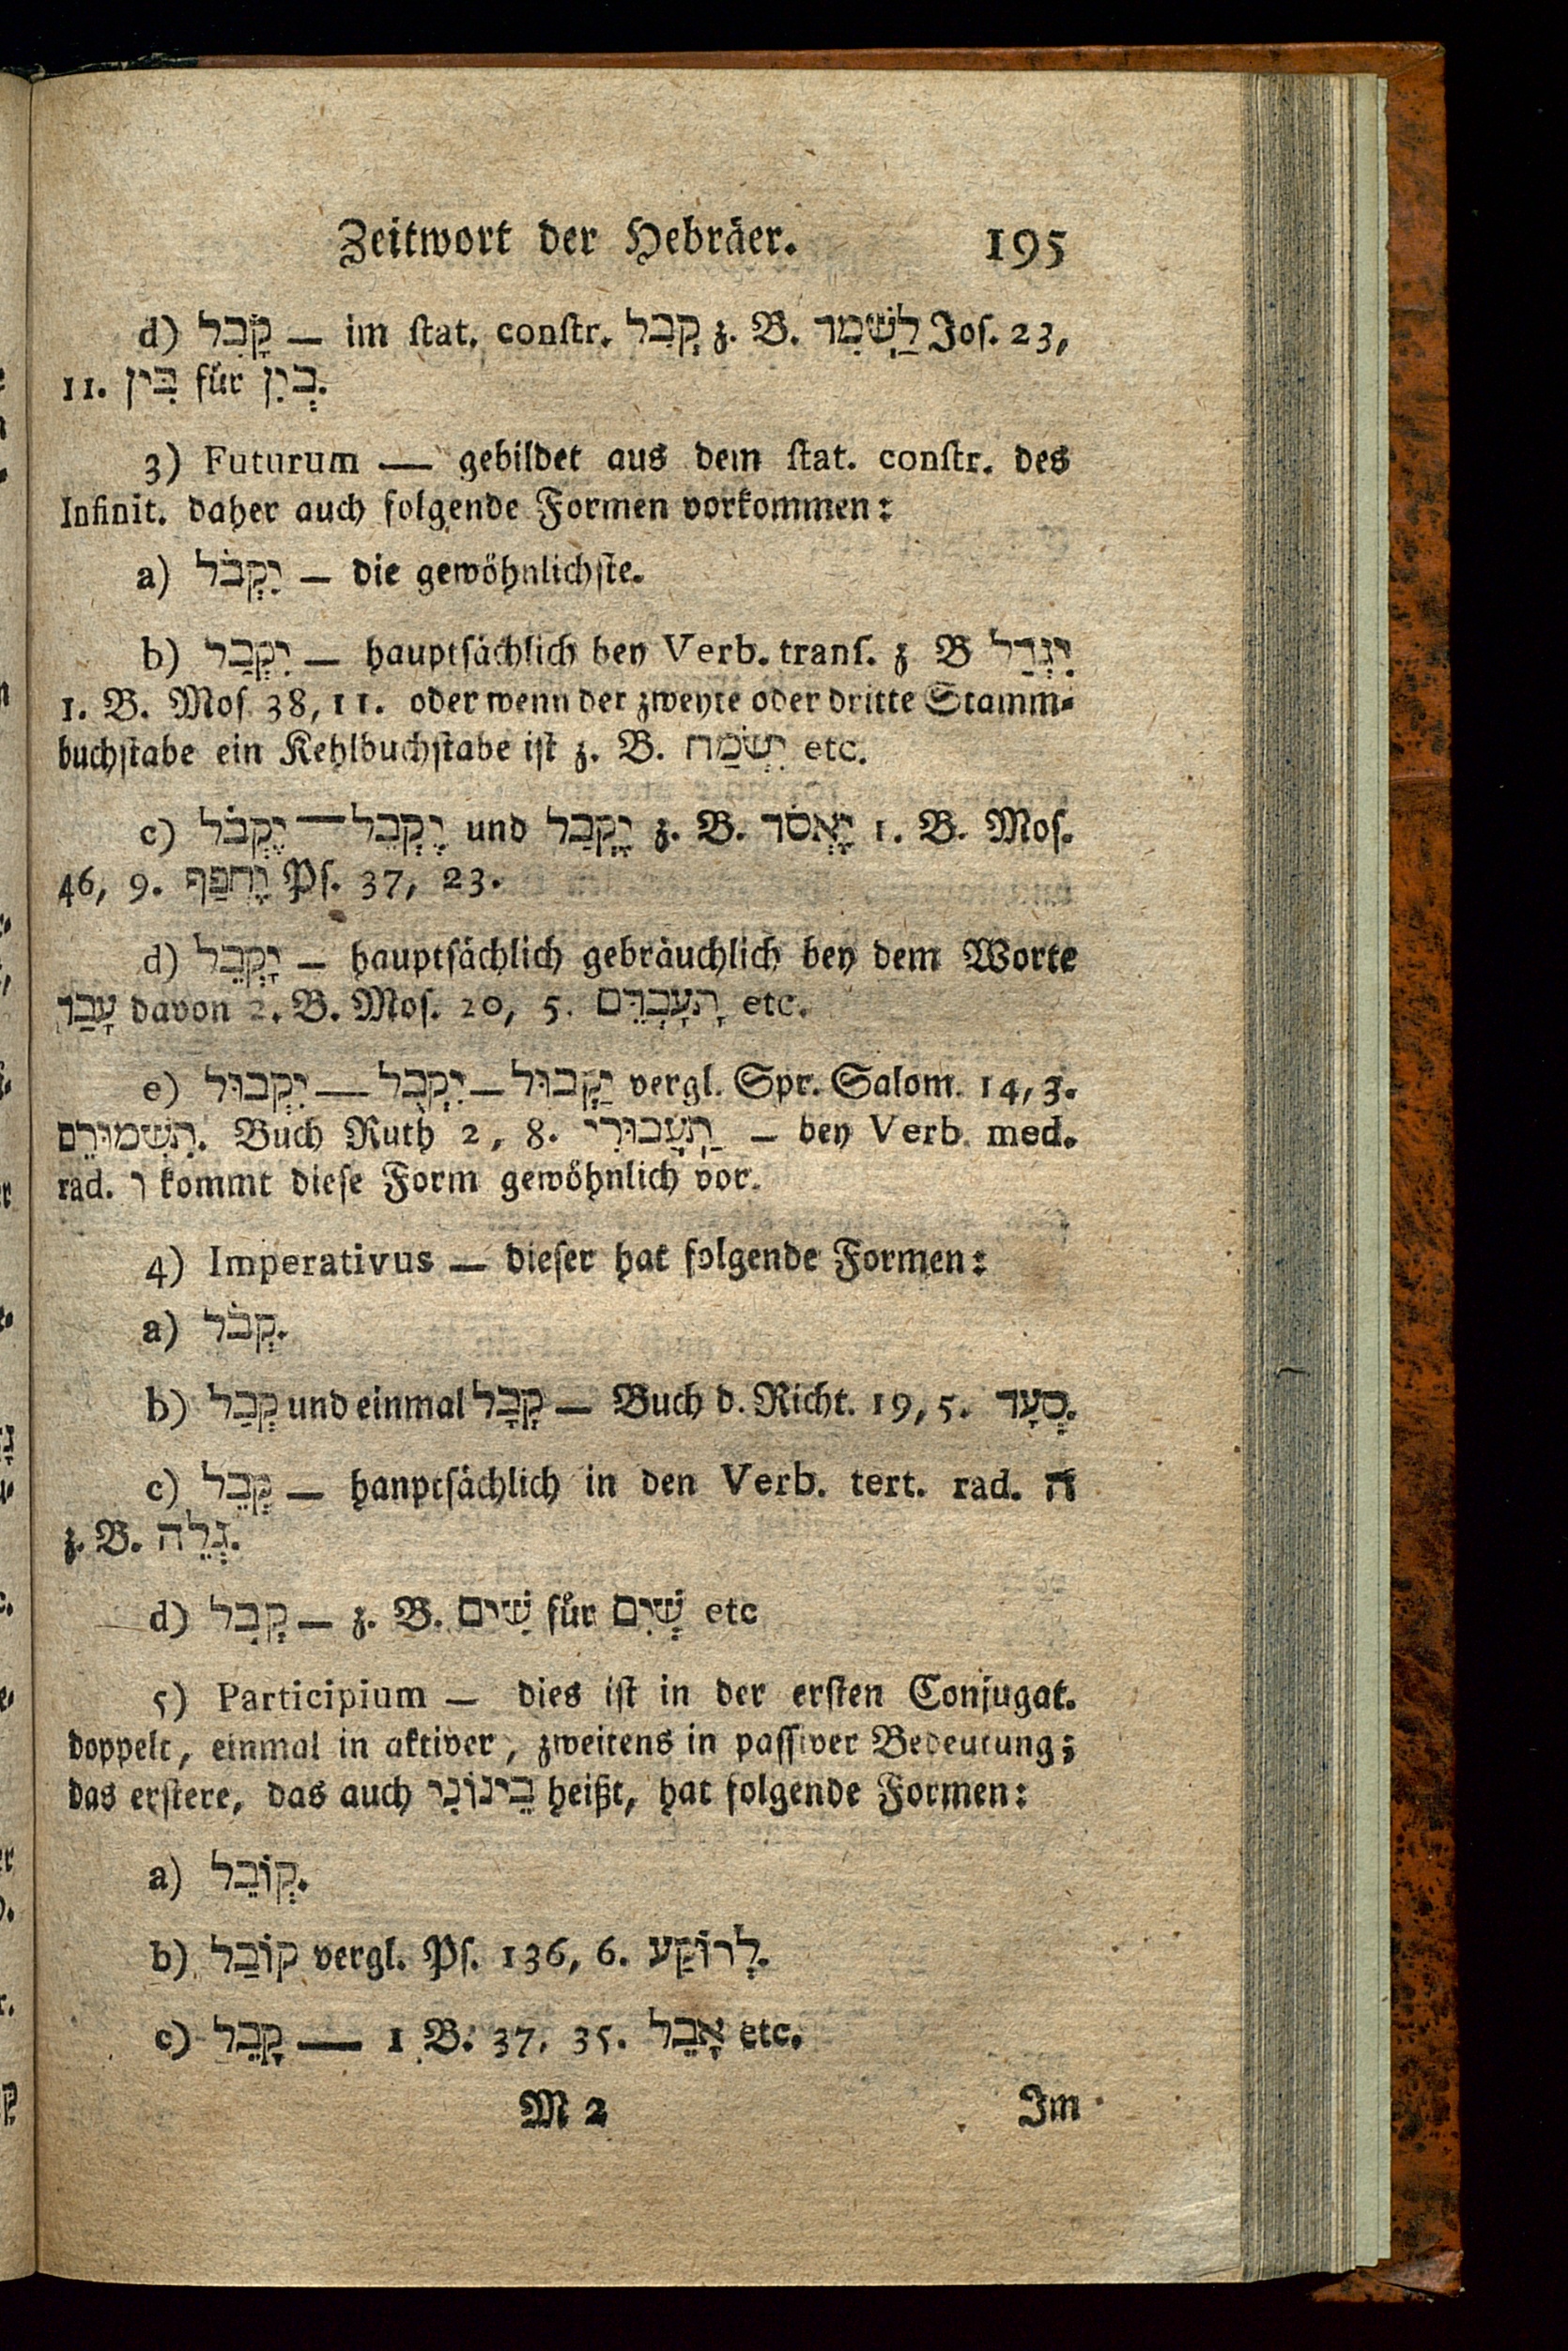 Zeitwort der Hebräer. 195
d) קָבִל — im ſtat. conſtr. קְבִל z. B. לַשְׁמִר Joſ. 23,
11. בִּין für בְּיִן.
3) Futurum — gebildet aus dem ſtat. conſtr. des
Infinit. daher auch folgende Formen vorkommen:
a) יִקְבֹל — die gewöhnlichſte.
b) יִקְבַל — hauptſächlich bey Verb. tranſ. z B יִגְדַל
1. B. Moſ. 38, 11. oder wenn der zweyte oder dritte Stamm-
buchſtabe ein Kehlbuchſtabe iſt z. B. יִשְׂמַח etc.
c) יֶקְבֹל — יֶקְבֵל und יֶקְבַל z. B. יֶאְסֹר 1. B. Moſ.
46, 9. יֶחפַּץ Pſ. 37, 23.
d) יָקְבֵל — hauptſächlich gebräuchlich bey dem Worte
עָבַד davon 2. B. Moſ. 20, 5. תָעָבְדֵם etc.
e) יִקְבוּל — יִקְבֻל — יַקֲבוּל vergl. Spr. Salom. 14, 3.
תִשְׁמוּרֵם. Buch Ruth 2, 8. תַעֲבוּרִי — bey Verb. med.
rad. ו kommt dieſe Form gewöhnlich vor.
4) Imperativus — dieſer hat folgende Formen:
a) קְבֹל.
b) קְבַל und einmal קְבָל — Buch d. Richt. 19, 5. סְעָד.
c) קְבֵל — hanptſächlich in den Verb. tert. rad. ה
z. B. גְלֵה.
d) קְבִל — z. B. שִׁים für שְׁיִם etc
5) Participium — dies iſt in der erſten Conjugat.
doppelt, einmal in aktiver, zweitens in paſſiver Bedeutung;
das erſtere, das auch בֵינוֹנִי heißt, hat folgende Formen:
a) קְוֹבֵל.
b) קוֹבַל vergl. Pſ. 136, 6. לְרוֹקַע.
c) קָבֵל — 1 B. 37, 35. אָבֵל etc.
M 2 Im